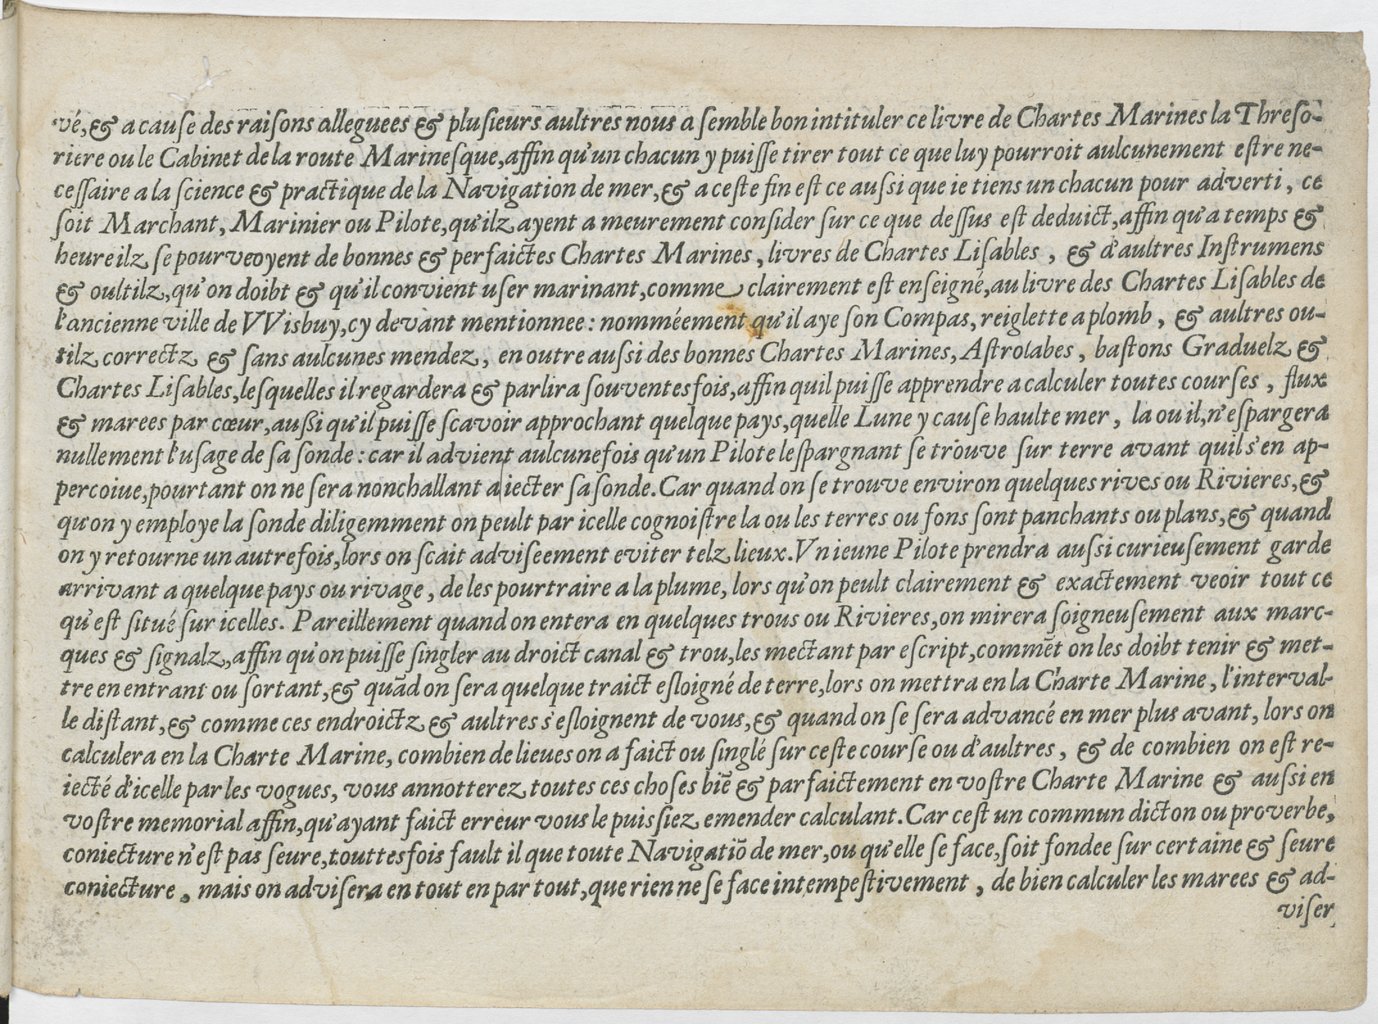 vé, & a cause des raisons alleguees & plusieurs aultres nous a semble bon intituler ce livre de Chartes Marines la Threso-
riere ou le Cabinet de la route Marinesque, affin qu'un chacun y puisse tirer tout ce que luy pourroit aulcunement estre ne-
cessaire a la science & practique de la Navigation de mer, & a ceste fin est ce aussi que ie tiens un chacun pour adverti, ce
soit Marchant, Marinier ou Pilote, qu'ilz ayent a meurement consider sur ce que dessus est deduict, affin qu'a temps &
heure ilz se pourveoyent de bonnes & perfaictes Chartes Marines, livres de Chartes Lisables, & d'aultres Instrumens
& oultilz, qu'on doibt & qu'il convient user marinant, comme clairement est enseigné, au livre des Chartes Lisables de
l'ancienne ville de VVisbuy, cy devant mentionnee: nomméement qu'il aye son Compas, reiglette a plomb, & aultres ou-
tilz correctz & sans aulcunes mendez, en outre aussi des bonnes Chartes Marines, Astrolabes, bastons Graduelz &
Chartes Lisables, lesquelles il regardera & parlira souventesfois, affin quil puisse apprendre a calculer toutes courses, flux
& marees par cœur, aussi qu'il puisse scavoir approchant quelque pays, quelle Lune y cause haulte mer, la ou il, n'espargera
nullement l'usage de sa sonde: car il advient aulcunefois qu'un Pilote lespargnant se trouve sur terre avant quil s'en ap-
percoiue, pourtant on ne sera nonchallant a iecter sa sonde. Car quand on se trouve environ quelques rives ou Rivieres, &
qu'on y employe la sonde diligemment on peult par icelle cognoistre la ou les terres ou fons sont panchants ou plans, & quand
on y retourne un autrefois, lors on scait adviseement eviter telz lieux. Vn ieune Pilote prendra aussi curieusement garde
arrivant a quelque pays ou rivage, de les pourtraire a la plume, lors qu'on peult clairement & exactement veoir tout ce
qu'est situé sur icelles. Pareillement quand on entera en quelques trous ou Rivieres, on mirera soigneusement aux marc-
ques & signalz, affin qu'on puisse singler au droict canal & trou, les mectant par escript, commēt on les doibt tenir & met-
tre en entrant ou sortant, & quād on sera quelque traict esloigné de terre, lors on mettra en la Charte Marine, l'interval-
le distant, & comme ces endroictz & aultres s'esloignent de vous, & quand on se sera advancé en mer plus avant, lors on
calculera en la Charte Marine, combien de lieues on a faict ou singlé sur ceste course ou d'aultres, & de combien on est re-
iecté d'icelle par les vogues, vous annotterez toutes ces choses biē & parfaictement en vostre Charte Marine & aussi en
vostre memorial affin, qu'ayant faict erreur vous le puissiez emender calculant. Car cest un commun dicton ou proverbe,
coniecture n'est pas seure, touttesfois fault il que toute Navigatiō de mer, ou qu'elle se face, soit fondee sur certaine & seure
coniecture, mais on advisera en tout en par tout, que rien ne se face intempestivement, de bien calculer les marees & ad-
viser